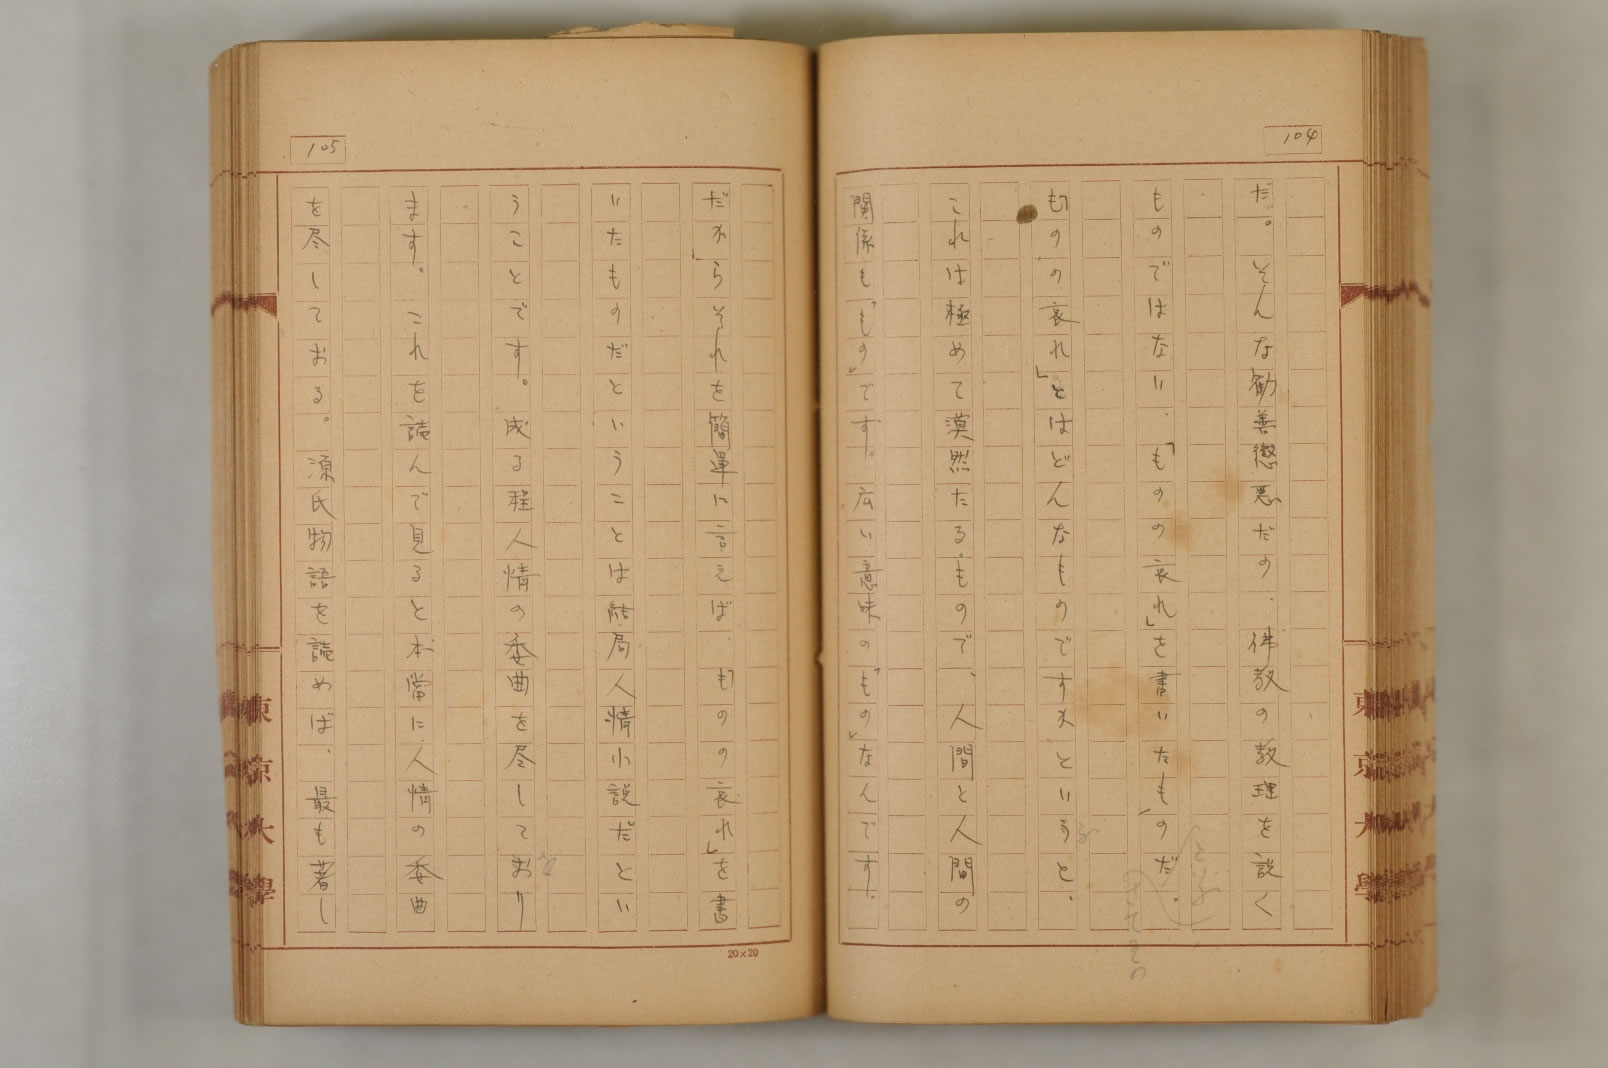 104
だ。そんな勧善懲悪だの、佛教の教理を説く
ものではない、「ものの哀れ」を書いたものだ。
「ものの哀れ」とはどんなものですかというと、
これは極めて漠然たるもので、人間と人間の
関係も「もの」です。広い意味の「もの」なんです。
105
だからそれを簡単に言えば、「ものの哀れ」を書
いたものだということは結局人情小説だとい
うことです。成る程人情の委曲を尽しており
ます。これを読んで見ると本當に人情の委曲
を尽しておる。源氏物語を読めば、最も著し
20×20
東京大學
東京大學